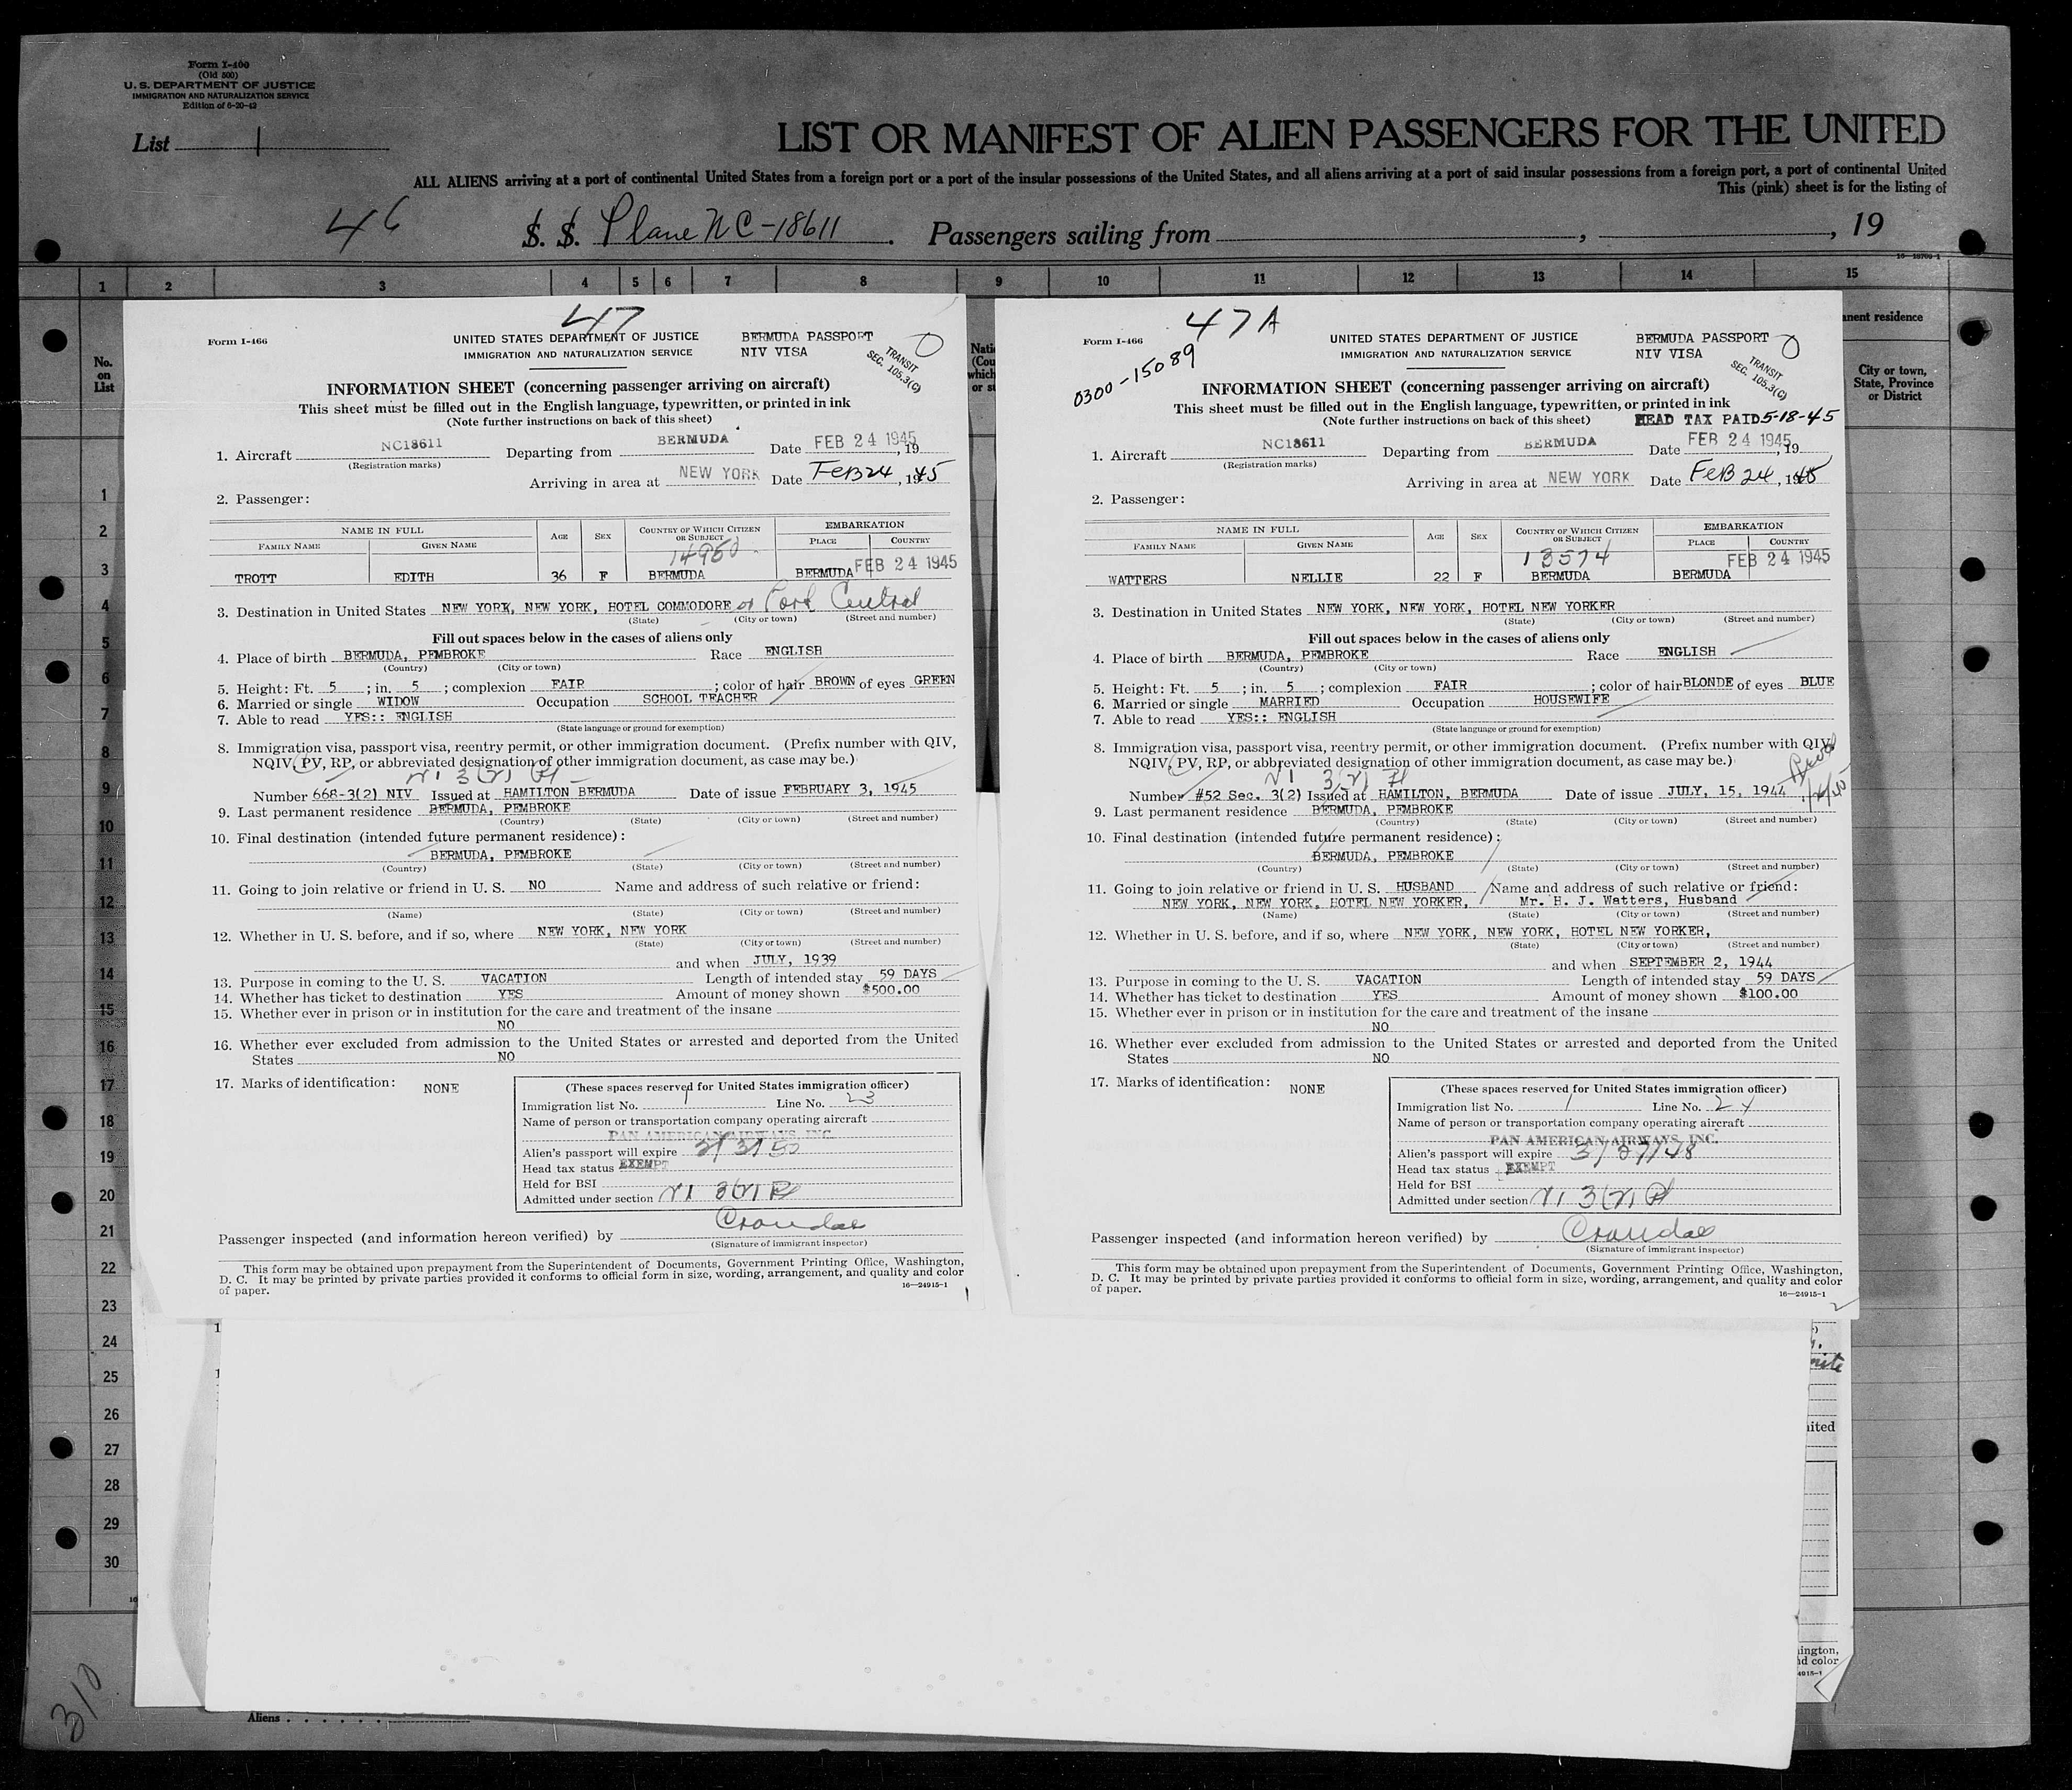 Form I-400
(Old 500)
U. S. DEPARTMENT OF JUSTICE
IMMIGRATION AND NATURALIZATION SERVICE
Edition of 6-20-42
List 1
LIST OR MANIFEST OF ALIEN PASSENGERS FOR THE UNITED
ALL ALIENS arriving at a port of continental United States from a foreign port or a port of the insular possessions of the United States, and all aliens arriving at a port of said insular possessions from a foreign port, a port of continental United
This (pink) sheet is for the listing of
46 S. S. Plane NC-18611. Passengers sailing from , , 19
1 2 3 4 5 6 7 8 9 10 11 12 13 14 15
No.
on
List
1
2
3
4
5
6
7
8
9
10
11
12
13
14
15
16
17
18
19
20
21
22
23
24
25
26
27
28
29
30
47
Form I-466
UNITED STATES DEPARTMENT OF JUSTICE
IMMIGRATION AND NATURALIZATION SERVICE
BERMUDA PASSPORT
NIV VISA
TRANSIT
SEC. 105.3(C)
INFORMATION SHEET (concerning passenger arriving on aircraft)
This sheet must be filled out in the English language, typewritten, or printed in ink
(Note further instructions on back of this sheet)
1. Aircraft NC18611 Departing from BERMUDA Date FEB 24 1945, 19
(Registration marks)
Arriving in area at NEW YORK Date FEB 24, 1945
2. Passenger:
NAME IN FULL AGE SEX COUNTRY OF WHICH CITIZEN OR SUBJECT EMBARKATION
FAMILY NAME GIVEN NAME PLACE COUNTRY
14950
TROTT EDITH 36 F BERMUDA BERMUDA FEB 24 1945
3. Destination in United States NEW YORK, NEW YORK, HOTEL COMMODORE or Park Central
(State) (City or town) (Street and number)
Fill out spaces below in the cases of aliens only
4. Place of birth BERMUDA, PEMBROKE Race ENGLISH
(Country) (City or town)
5. Height: Ft. 5; in. 5; complexion FAIR; color of hair BROWN of eyes GREEN
6. Married or single WIDOW Occupation SCHOOL TEACHER
7. Able to read YES:: ENGLISH
(State language or ground for exemption)
8. Immigration visa, passport visa, reentry permit, or other immigration document. (Prefix number with QIV,
NQIV, PV, RP, or abbreviated designation of other immigration document, as case may be.)
Number 668-3(2) NIV Issued at HAMILTON BERMUDA Date of issue FEBRUARY 3, 1945
9. Last permanent residence BERMUDA, PEMBROKE
(Country) (State) (City or town) (Street and number)
10. Final destination (intended future permanent residence):
BERMUDA, PEMBROKE
(Country) (State) (City or town) (Street and number)
11. Going to join relative or friend in U. S. NO Name and address of such relative or friend:
(Name) (State) (City or town) (Street and number)
12. Whether in U. S. before, and if so, where NEW YORK, NEW YORK
(State) (City or town) (Street and number)
and when JULY, 1939
13. Purpose in coming to the U. S. VACATION Length of intended stay 59 DAYS
14. Whether has ticket to destination YES Amount of money shown $500.00
15. Whether ever in prison or in institution for the care and treatment of the insane
NO
16. Whether ever excluded from admission to the United States or arrested and deported from the United
States NO
17. Marks of identification: NONE
(These spaces reserved for United States immigration officer)
Immigration list No. 1 Line No. 23
Name of person or transportation company operating aircraft
PAN AMERICAN AIRWAYS, INC.
Alien's passport will expire 2/3/50
Head tax status EXEMPT
Held for BSI
Admitted under section VI 3(2) P
Passenger inspected (and information hereon verified) by Crandal
(Signature of immigrant inspector)
This form may be obtained upon prepayment from the Superintendent of Documents, Government Printing Office, Washington,
D. C. It may be printed by private parties provided it conforms to official form in size, wording, arrangement, and quality and color
of paper.
16—24915-1
47 A
0300-15089
Form I-466
UNITED STATES DEPARTMENT OF JUSTICE
IMMIGRATION AND NATURALIZATION SERVICE
BERMUDA PASSPORT
NIV VISA
TRANSIT
SEC. 105.3(C)
INFORMATION SHEET (concerning passenger arriving on aircraft)
This sheet must be filled out in the English language, typewritten, or printed in ink
(Note further instructions on back of this sheet) HEAD TAX PAID 5-18-45
1. Aircraft NC18611 Departing from BERMUDA Date FEB 24 1945, 19
(Registration marks)
Arriving in area at NEW YORK Date FEB 24, 1945
2. Passenger:
NAME IN FULL AGE SEX COUNTRY OF WHICH CITIZEN OR SUBJECT EMBARKATION
FAMILY NAME GIVEN NAME PLACE COUNTRY
13574
WATTERS NELLIE 22 F BERMUDA BERMUDA FEB 24 1945
3. Destination in United States NEW YORK, NEW YORK, HOTEL NEW YORKER
(State) (City or town) (Street and number)
Fill out spaces below in the cases of aliens only
4. Place of birth BERMUDA, PEMBROKE Race ENGLISH
(Country) (City or town)
5. Height: Ft. 5; in. 5; complexion FAIR; color of hair BLONDE of eyes BLUE
6. Married or single MARRIED Occupation HOUSEWIFE
7. Able to read YES:: ENGLISH
(State language or ground for exemption)
8. Immigration visa, passport visa, reentry permit, or other immigration document. (Prefix number with QIV,
NQIV, PV, RP, or abbreviated designation of other immigration document, as case may be.)
Number #52 Sec. 3(2) Issued at HAMILTON, BERMUDA Date of issue JULY, 15, 1944
9. Last permanent residence BERMUDA, PEMBROKE
(Country) (State) (City or town) (Street and number)
10. Final destination (intended future permanent residence):
BERMUDA, PEMBROKE
(Country) (State) (City or town) (Street and number)
11. Going to join relative or friend in U. S. HUSBAND Name and address of such relative or friend:
NEW YORK, NEW YORK, HOTEL NEW YORKER, Mr. H. J. Watters, Husband
(Name) (State) (City or town) (Street and number)
12. Whether in U. S. before, and if so, where NEW YORK, NEW YORK, HOTEL NEW YORKER,
(State) (City or town) (Street and number)
and when SEPTEMBER 2, 1944
13. Purpose in coming to the U. S. VACATION Length of intended stay 59 DAYS
14. Whether has ticket to destination YES Amount of money shown $100.00
15. Whether ever in prison or in institution for the care and treatment of the insane
NO
16. Whether ever excluded from admission to the United States or arrested and deported from the United
States NO
17. Marks of identification: NONE
(These spaces reserved for United States immigration officer)
Immigration list No. 1 Line No. 24
Name of person or transportation company operating aircraft
PAN AMERICAN AIRWAYS, INC.
Alien's passport will expire 3/27/48
Head tax status EXEMPT
Held for BSI
Admitted under section VI 3(2) P
Passenger inspected (and information hereon verified) by Crandal
(Signature of immigrant inspector)
This form may be obtained upon prepayment from the Superintendent of Documents, Government Printing Office, Washington,
D. C. It may be printed by private parties provided it conforms to official form in size, wording, arrangement, and quality and color
of paper.
16—24915-1
anent residence
City or town,
State, Province
or District
nited
hington,
nd color
4915-1
Aliens
310